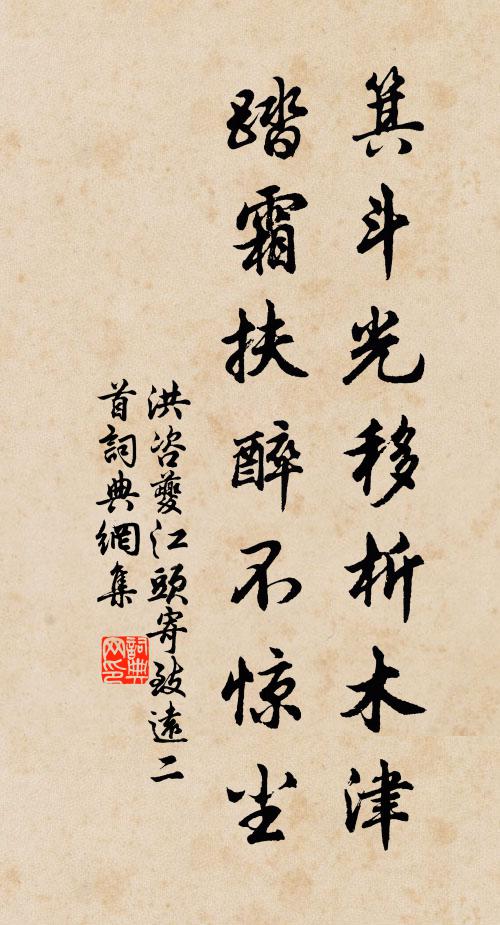 箕斗光移析木津
踏霜扶醉不惊尘
洪咨夔江頭寄致遠二
首詞典網集
詞典
网印